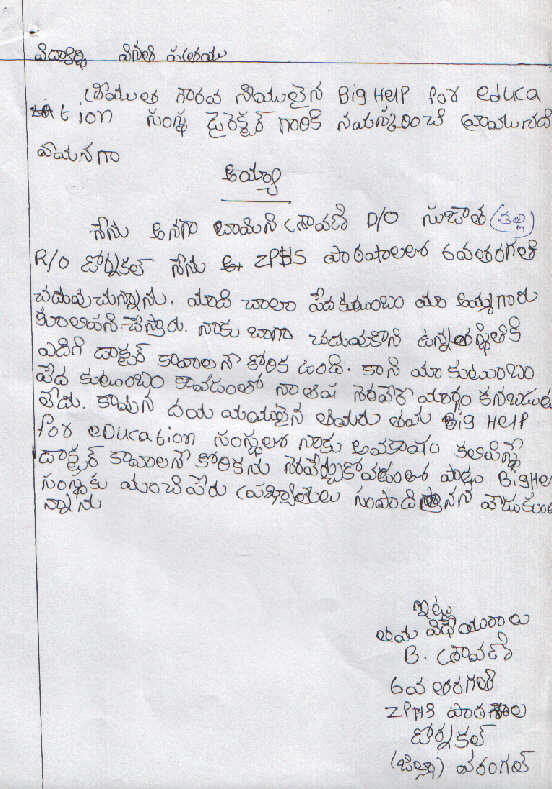 విద్యార్థి వినతి పత్రము
శ్రీయుత గౌరవ నీయులైన Big HelP For educa
tion సంస్థ డైరెక్టర్ గారికి నమస్కరించి వ్రాయునది
ఏమనగా
అయ్యా
నేను అనగా బామిని శ్రావణి D/O సుజాత (తల్లి)
R/O డోర్నకల్ నేను ZPHS పాఠశాలలో 6వతరగతి
చదువుచున్నాను. మాది చాలా పేదకుటుంబం మా అమ్మగారు
కూలిపని చేస్తారు. నాకు బాగా చదువుకొని ఉన్నతస్థితికి
ఎదిగి డాక్టర్ కావాలనే కోరిక ఉంది. కాని మా కుటుంబం
పేద కుటుంబం కావడంతో నా ఆశ నెరవేరే మార్గం కనబడుట
లేదు. కావున దయ మయులైన తమరు తమ Big HelP
For eDucation సంస్థలో నాకు అవకాశం కల్పిస్తే
డాక్టర్ కావాలనే కోరికను నెరవేర్చుకోవడంతో పాటు BigHel
సంస్థకు మంచిపేరు ప్రఖ్యాతులు సంపాదిస్తానని వేడుకుంటు
న్నాను
ఇట్లు
తమ విధేయురాలు
B. శ్రావణి
6వ తరగతి
ZPHS పాఠశాల
డోర్నకల్
(జిల్లా) వరంగల్